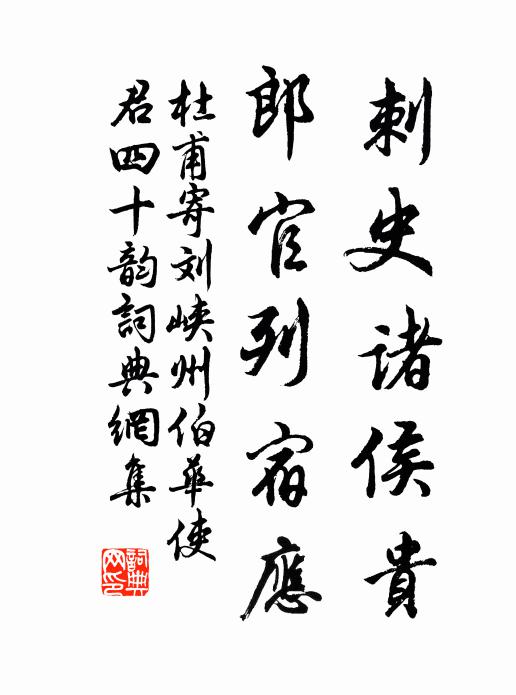 刺史諸侯貴
郎官列宿應
杜甫寄刘峡州伯華使
君四十韵詞典網集
詞典網印